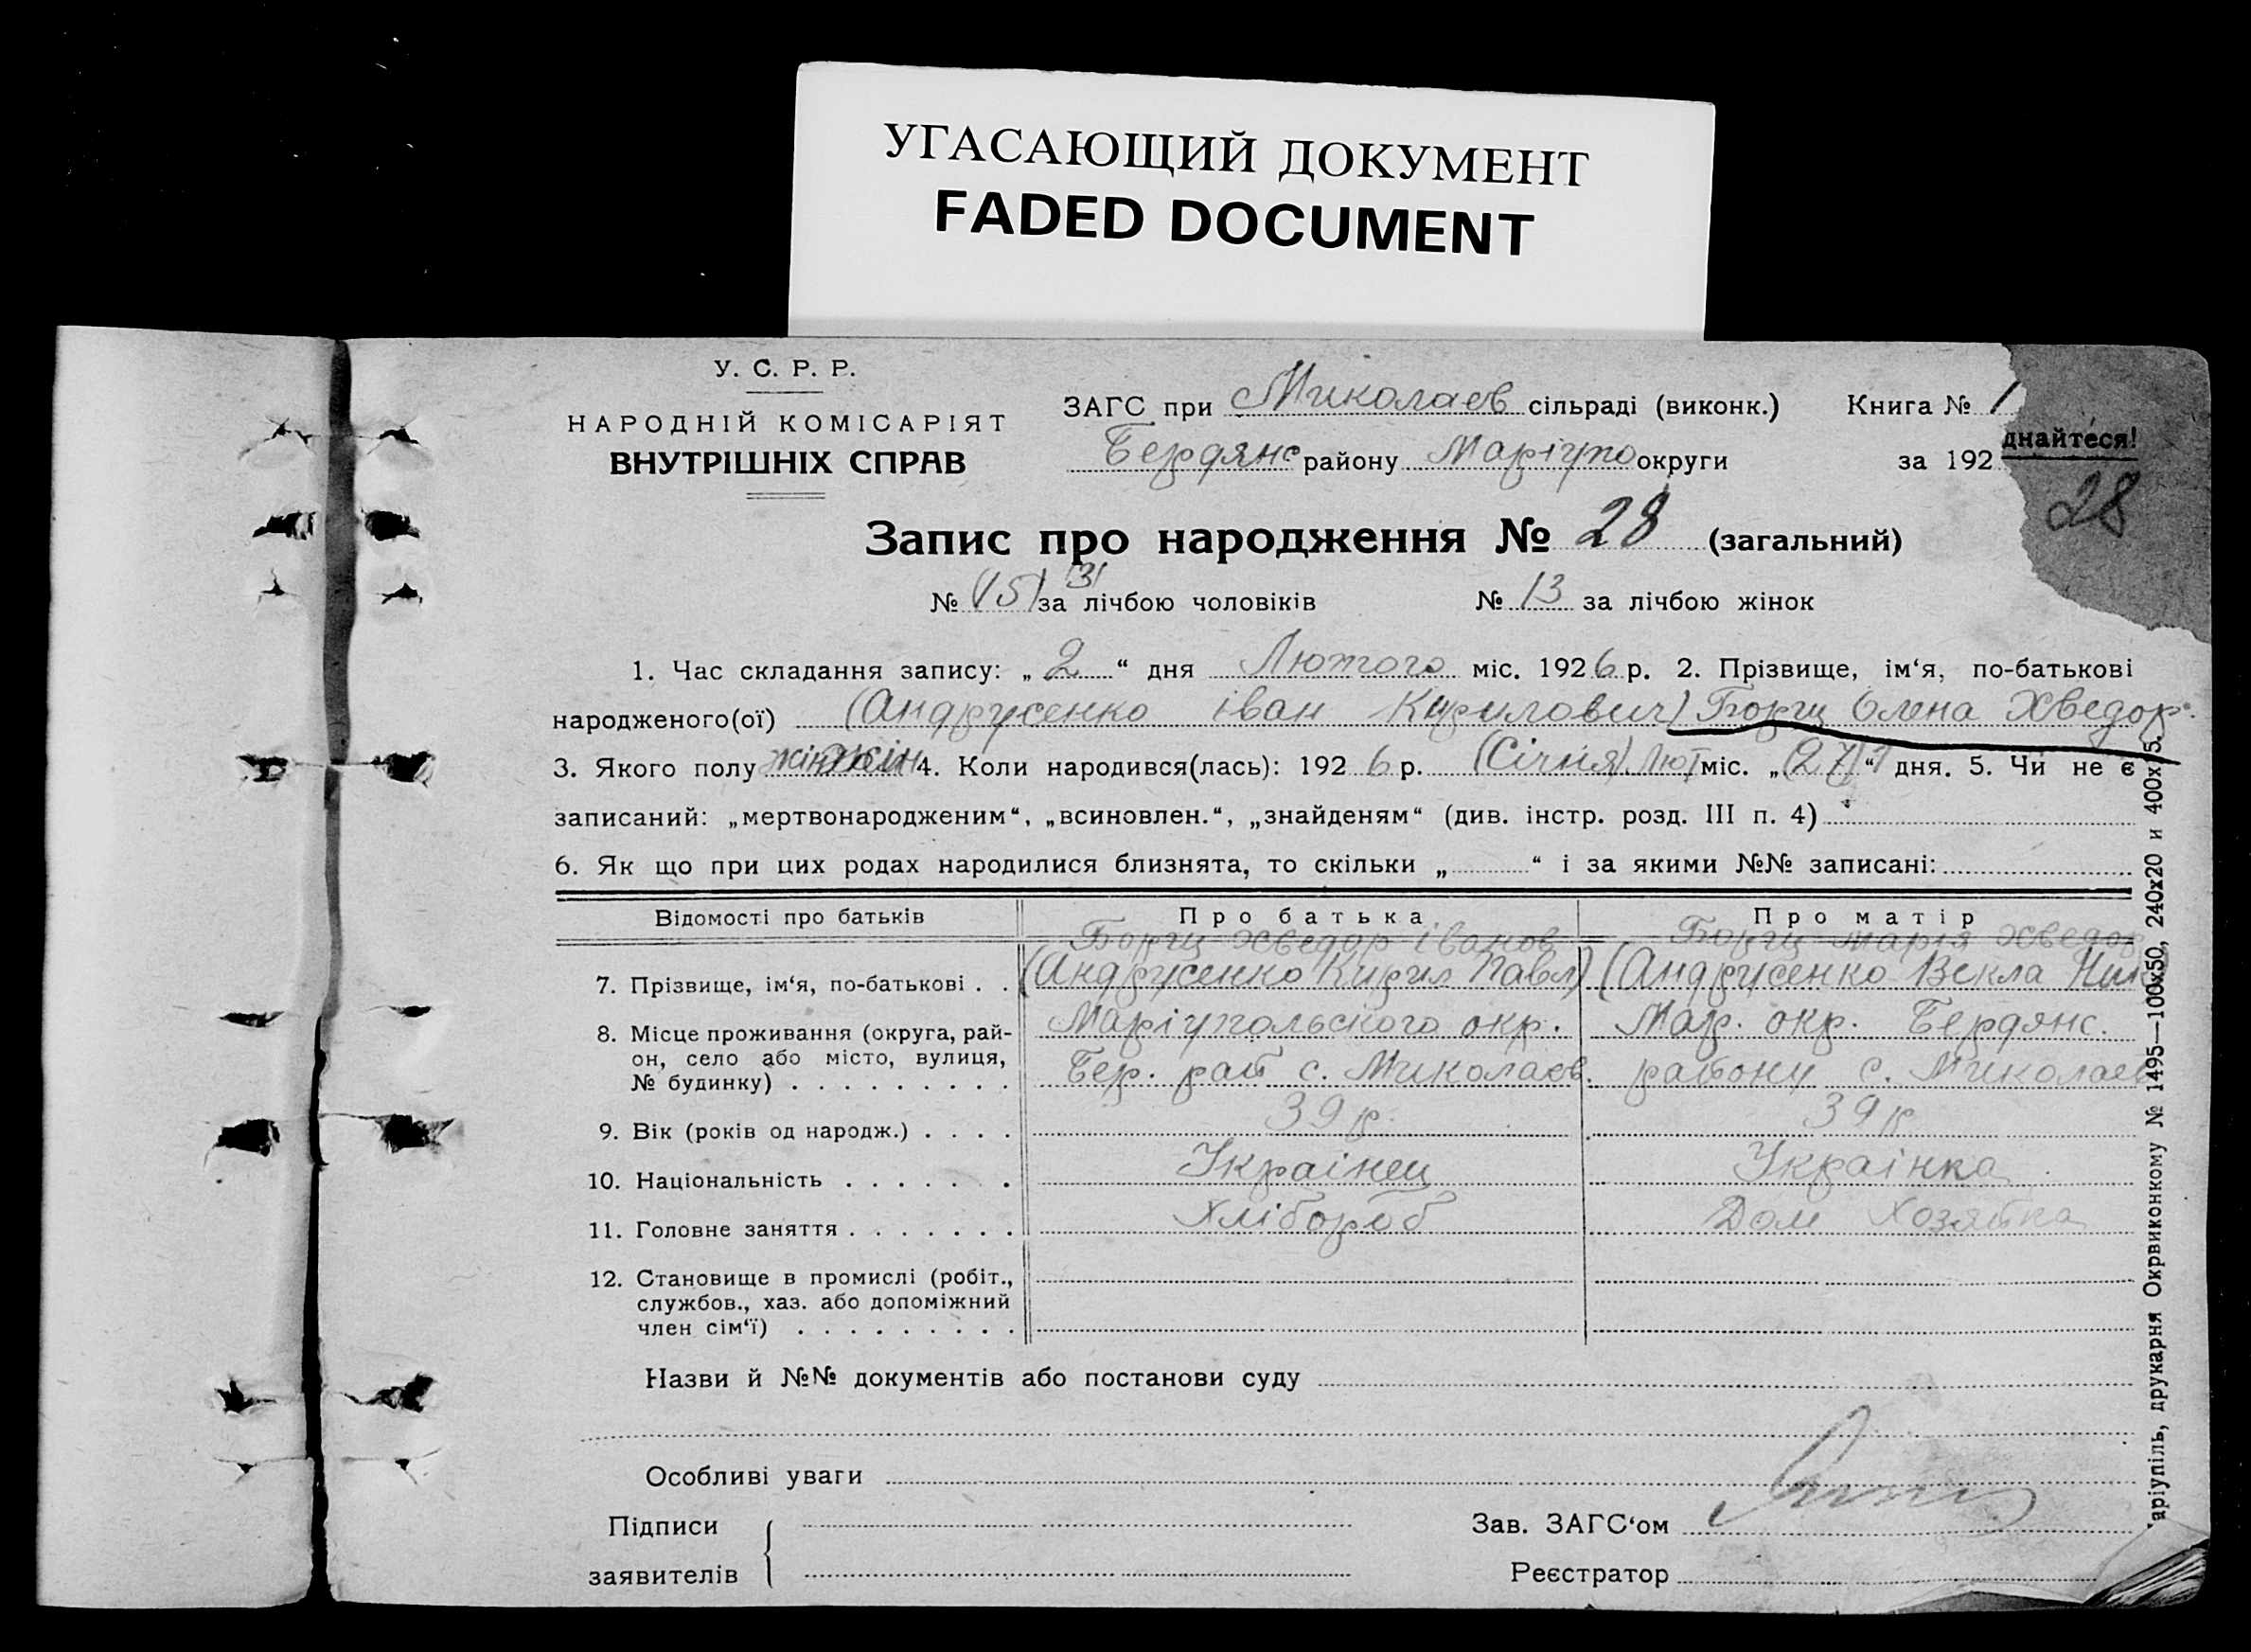 УГАСАЮЩИЙ ДОКУМЕНТ
FADED DOCUMENT
У. С. Р. Р.
НАРОДНІЙ КОМІСАРІЯТ
ВНУТРІШНІХ СПРАВ
ЗАГС при Миколаев сільраді (виконк.) Книга № 1
Бердянс району Маріупо округи за 192
днайтеся!
28
Запис про народження № 28 (загальний)
№ (15) 13 за лічбою чоловіків № 13 за лічбою жінок
1. Час складання запису: „ 2 “ дня Лютого міс. 1926 р. 2. Прізвище, ім‘я, по-батькові
народженого(ої) (Андрусенко іван Кирилович) Борщ Олена Хведор.
3. Якого полу жін 4. Коли народився(лась): 1926 р. (Січня) Лют міс. „(27) 1“ дня. 5. Чи не є
записаний: „мертвонародженим“, „всиновлен.“, „знайденям“ (див. інстр. розд. III п. 4)
6. Як що при цих родах народилися близнята, то скільки „ “ і за якими №№ записані:
Відомості про батьків Про батька Про матір
Борщ Хведор іванов Борщ Марія Хведор
7. Прізвище, ім‘я, по-батькові . . (Андрусенко Кирил Павл) (Андрусенко Векла Ник)
8. Місце проживання (округа, рай- Маріупольского окр. Мар. окр. Бердянс.
он, село або місто, вулиця,
№ будинку) . . . . . . . . . Бер. рай с. Миколаев. району с. Миколаев
9. Вік (років од народж.) . . . . 39 р. 39 р
10. Національність . . . . . . . Украінец Украінка
11. Головне заняття . . . . . . . Хлібороб Дом Хозяйка
12. Становище в промислі (робіт.,
службов., хаз. або допоміжний
член сім‘ї) . . . . . . . . .
Назви й №№ документів або постанови суду
Особливі уваги
Підписи Зав. ЗАГС‘ом
заявителів Реєстратор
аріупіль, друкарня Окрвиконкому № 1495—100х50, 240х20 и 400х15.